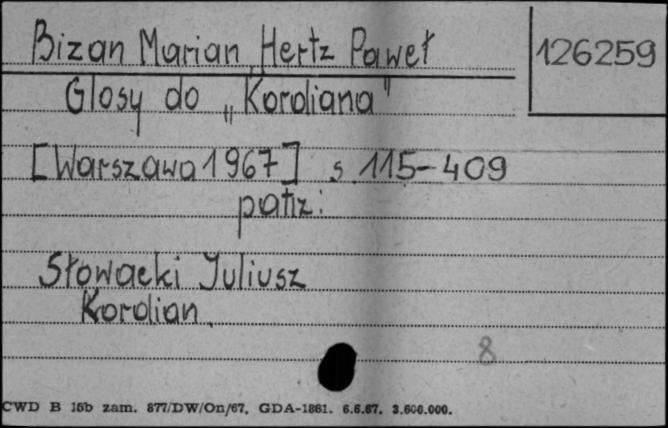 Bizan Marian, Hertz Paweł
126259
Glosy do „Kordiana"
[Warszawa 1967] s. 115-409
patrz:
Słowacki Juliusz
Kordian.
8
CWD B 15b zam. 877/DW/On/67. GDA-1861. 6.6.67. 3.600.000.